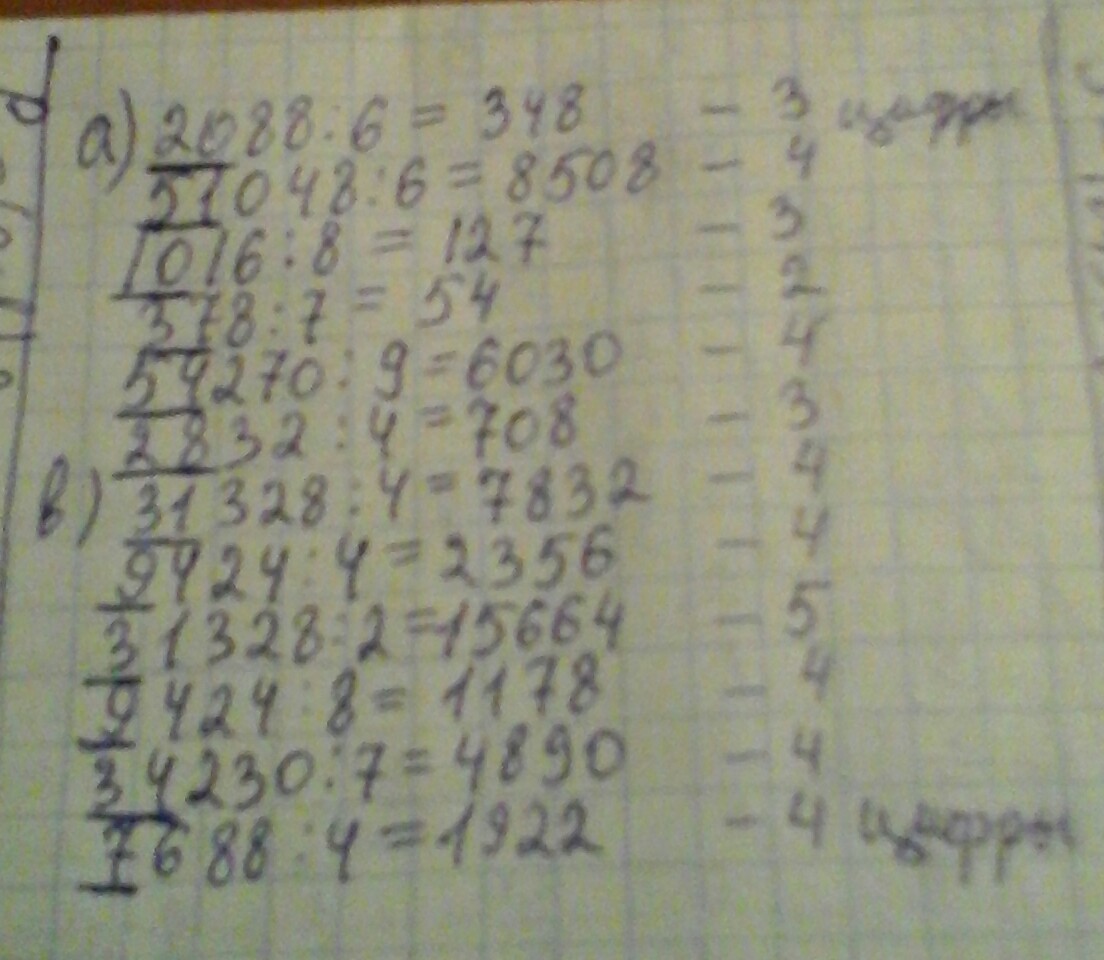 а) 2088:6 = 348 - 3 цифры
51048:6 = 8508 - 4
1016:8 = 127 - 3
378:7 = 54 - 2
54270:9 = 6030 - 4
2832:4 = 708 - 3
в) 31328:4 = 7832 - 4
9424:4 = 2356 - 4
31328:2 = 15664 - 5
9424:8 = 1178 - 4
34230:7 = 4890 - 4
7688:4 = 1922 - 4 цифры